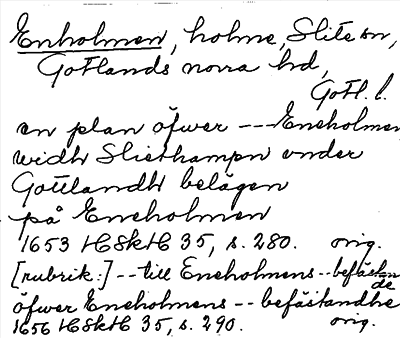 Enholmen, holme, Slite sn,
Gotlands norra hd,
Gotl. l.
en plan öfwer --- Eneholmen
widh Sliethampn vnder
Gottlandh belägen
på Eneholmen
1653 HSkH 35, s. 280. orig.
[rubrik:] -- till Eneholmens -- befästande
öfwer Eneholmens -- befästandhe
1656 HSkH 35, s. 290. orig.